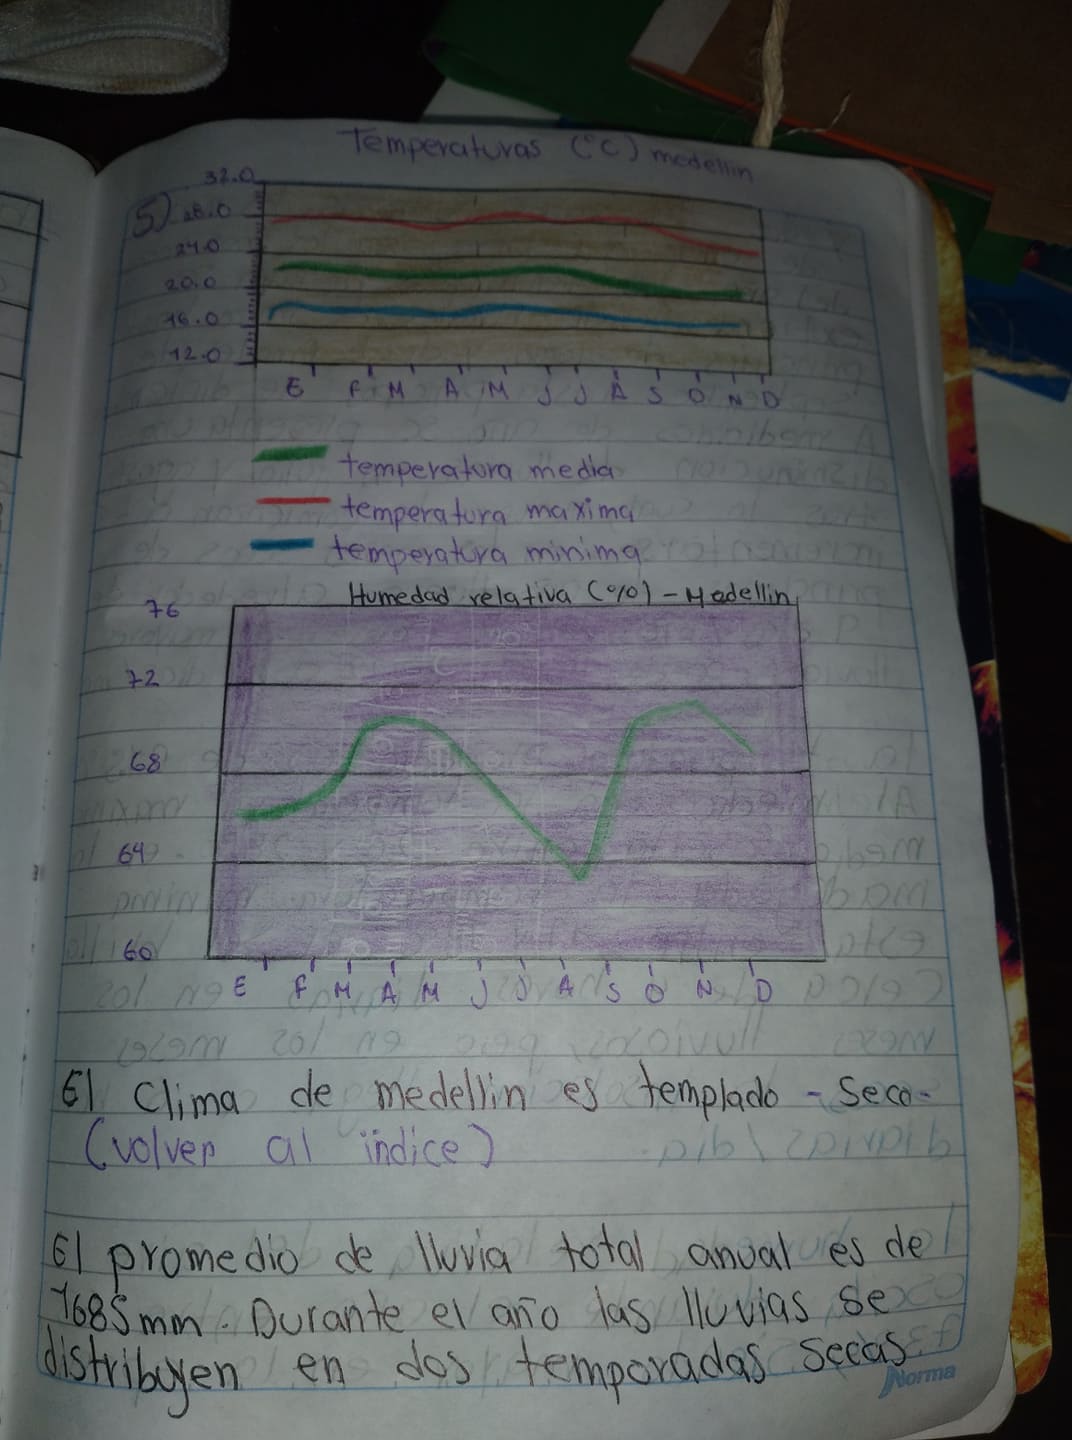 Temperaturas (°C) medellin
32.0
5) 28.0
24.0
20.0
16.0
12.0
E F M A M J J A S O N D
temperatura media
temperatura maxima
temperatura minima
Humedad relativa (%) - Medellin
76
72
68
64
60
E F M A M J J A S O N D
El Clima de medellin es templado - Seco-
(volver al indice)
El promedio de lluvia total anual es de
1685mm. Durante el año las lluvias se
distribuyen en dos temporadas secas
Norma